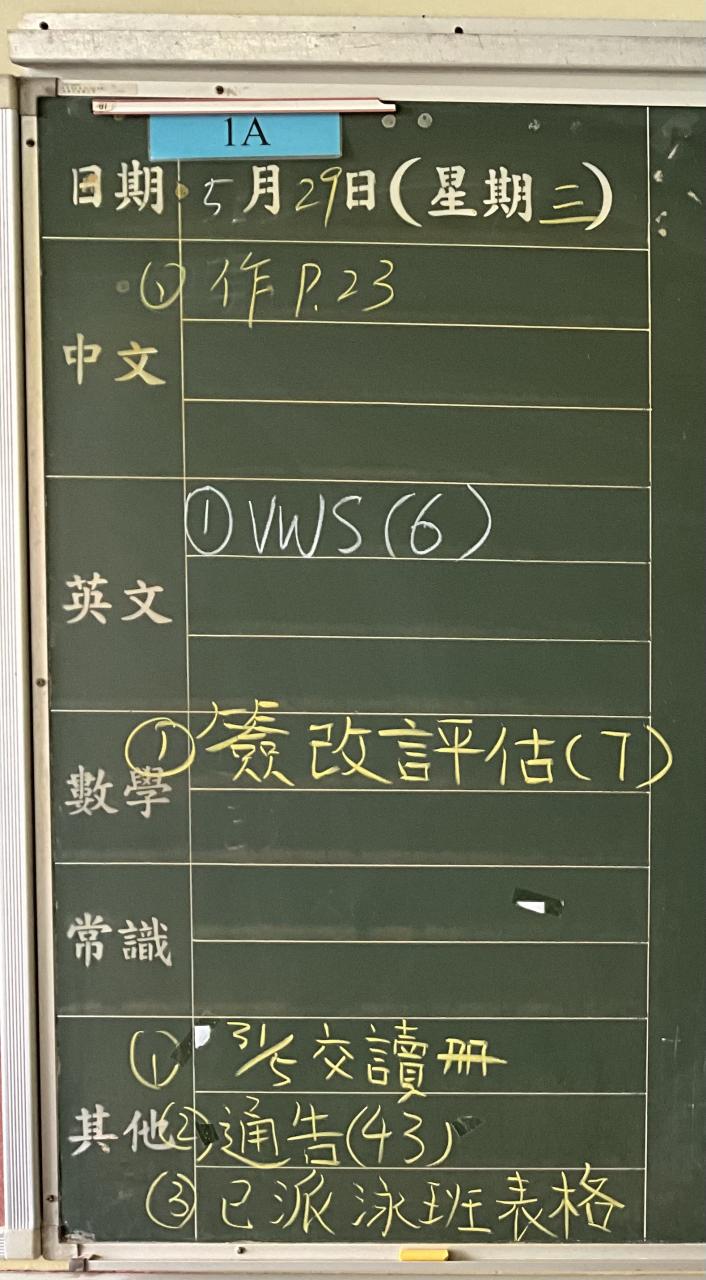 1A
日期 5月29日(星期三)
中文
① 作 P.23
英文
① VWS(6)
數學
① 簽改評估(7)
常識
其他
① 31/5 交讀冊
② 通告(43)
③ 已派泳班表格